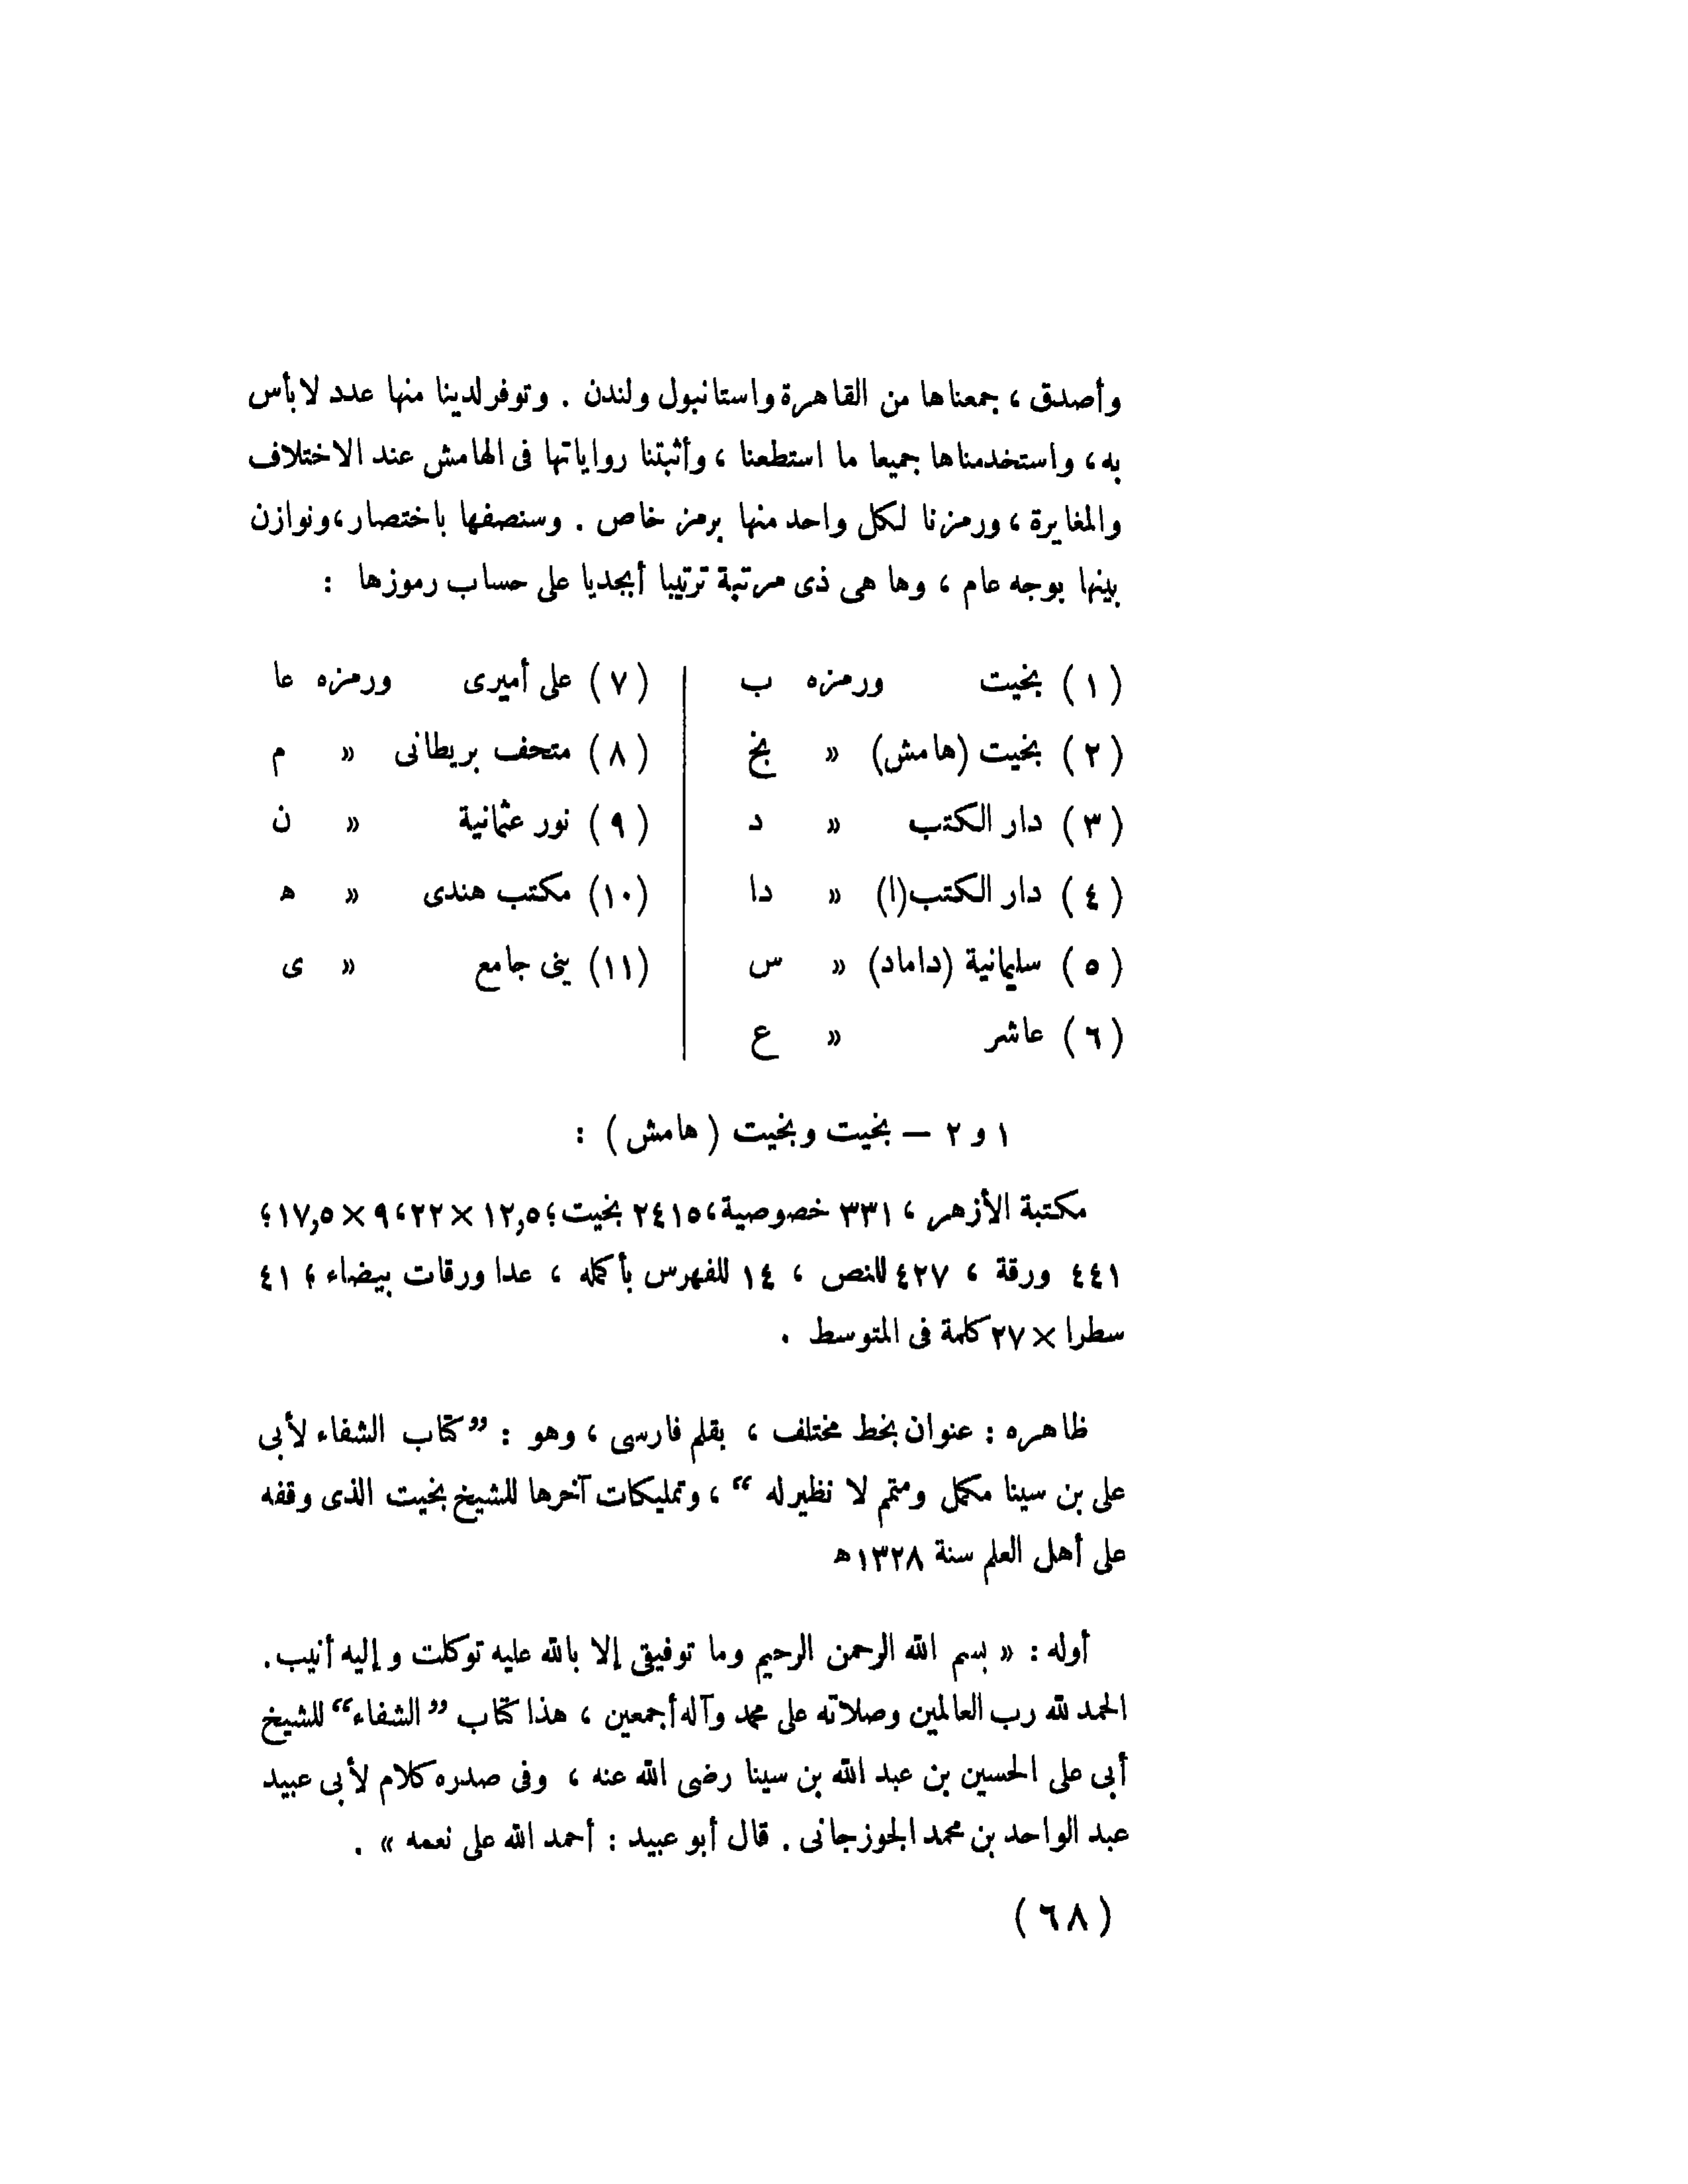 وأصدق ، جمعناها من القاهرة واستانبول ولندن . وتوفر لدينا منها عدد لا بأس
به ، واستخدمناها جميعا ما استطعنا ، وأثبتنا رواياتها فى الهامش عند الاختلاف
والمغايرة ، ورمزنا لكل واحد منها برمز خاص . وسنصفها باختصار ، ونوازن
بينها بوجه عام ، وها هى ذى مرتبة ترتيبا أبجديا على حساب رموزها :
( ١ ) بخيت ورمزه ب
( ٢ ) بخيت (هامش) » بخ
( ٣ ) دار الكتب » د
( ٤ ) دار الكتب (ا) » دا
( ٥ ) سليمانية (داماد) » س
( ٦ ) عاشر » ع
( ٧ ) على أميرى ورمزه عا
( ٨ ) متحف بريطانى » م
( ٩ ) نور عثمانية » ن
(١٠) مكتب هندى » ه
(١١) ينى جامع » ى
١ و ٢ — بخيت وبخيت ( هامش ) :
مكتبة الأزهر ، ٣٣١ خصوصية ، ٢٤١٥ بخيت ؛ ١٢,٥ × ٢٢ ، ٩ × ١٧,٥ ؛
٤٤١ ورقة ، ٤٢٧ للنص ، ١٤ للفهرس بأكمله ، عدا ورقات بيضاء ؛ ٤١
سطرا × ٢٧ كلمة فى المتوسط .
ظاهره : عنوان بخط مختلف ، بقلم فارسى ، وهو : ”كتاب الشفاء لأبى
على بن سينا مكمل ومتمم لا نظير له “ ، وتمليكات آخرها للشيخ بخيت الذى وقفه
على أهل العلم سنة ١٣٢٨ ه
أوله : « بسم الله الرحمن الرحيم وما توفيقى إلا بالله عليه توكلت وإليه أنيب .
الحمد لله رب العالمين وصلاته على محمد وآله أجمعين ، هذا كتاب ”الشفاء“ للشيخ
أبى على الحسين بن عبد الله بن سينا رضى الله عنه ، وفى صدره كلام لأبى عبيد
عبد الواحد بن محمد الجوزجانى . قال أبو عبيد : أحمد الله على نعمه » .
( ٦٨ )